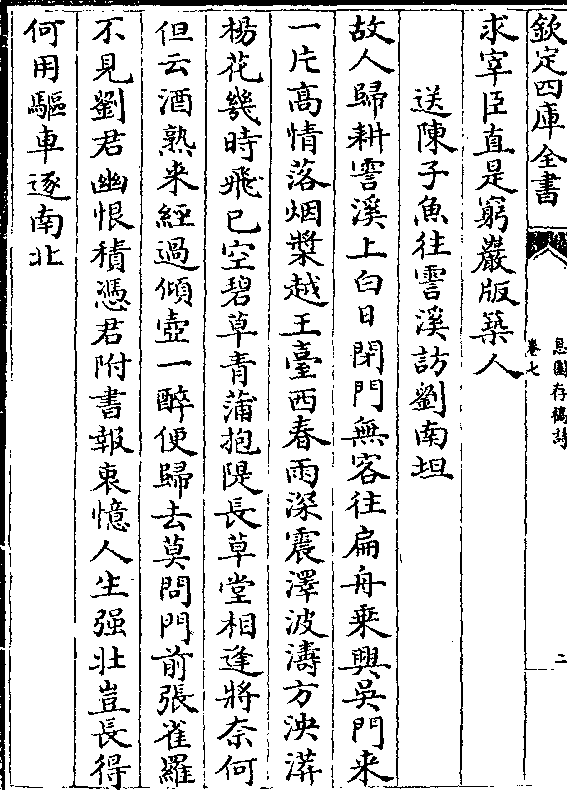 欽定四庫全書
息園存稿詩
卷七
二
求宰臣直是窮巖版築人
送陳子魚往霅溪訪劉南坦
故人歸耕霅溪上白日閉門無客往扁舟乗興吳門来
一片高情落烟槳越王臺西春雨深震澤波濤方泱漭
楊花幾時飛已空碧草青蒲抱隄長草堂相逢將奈何
但云酒熟来經過傾壺一醉便歸去莫問門前張雀羅
不見劉君幽恨積憑君附書報衷憶人生强壯豈長得
何用驅車逐南北